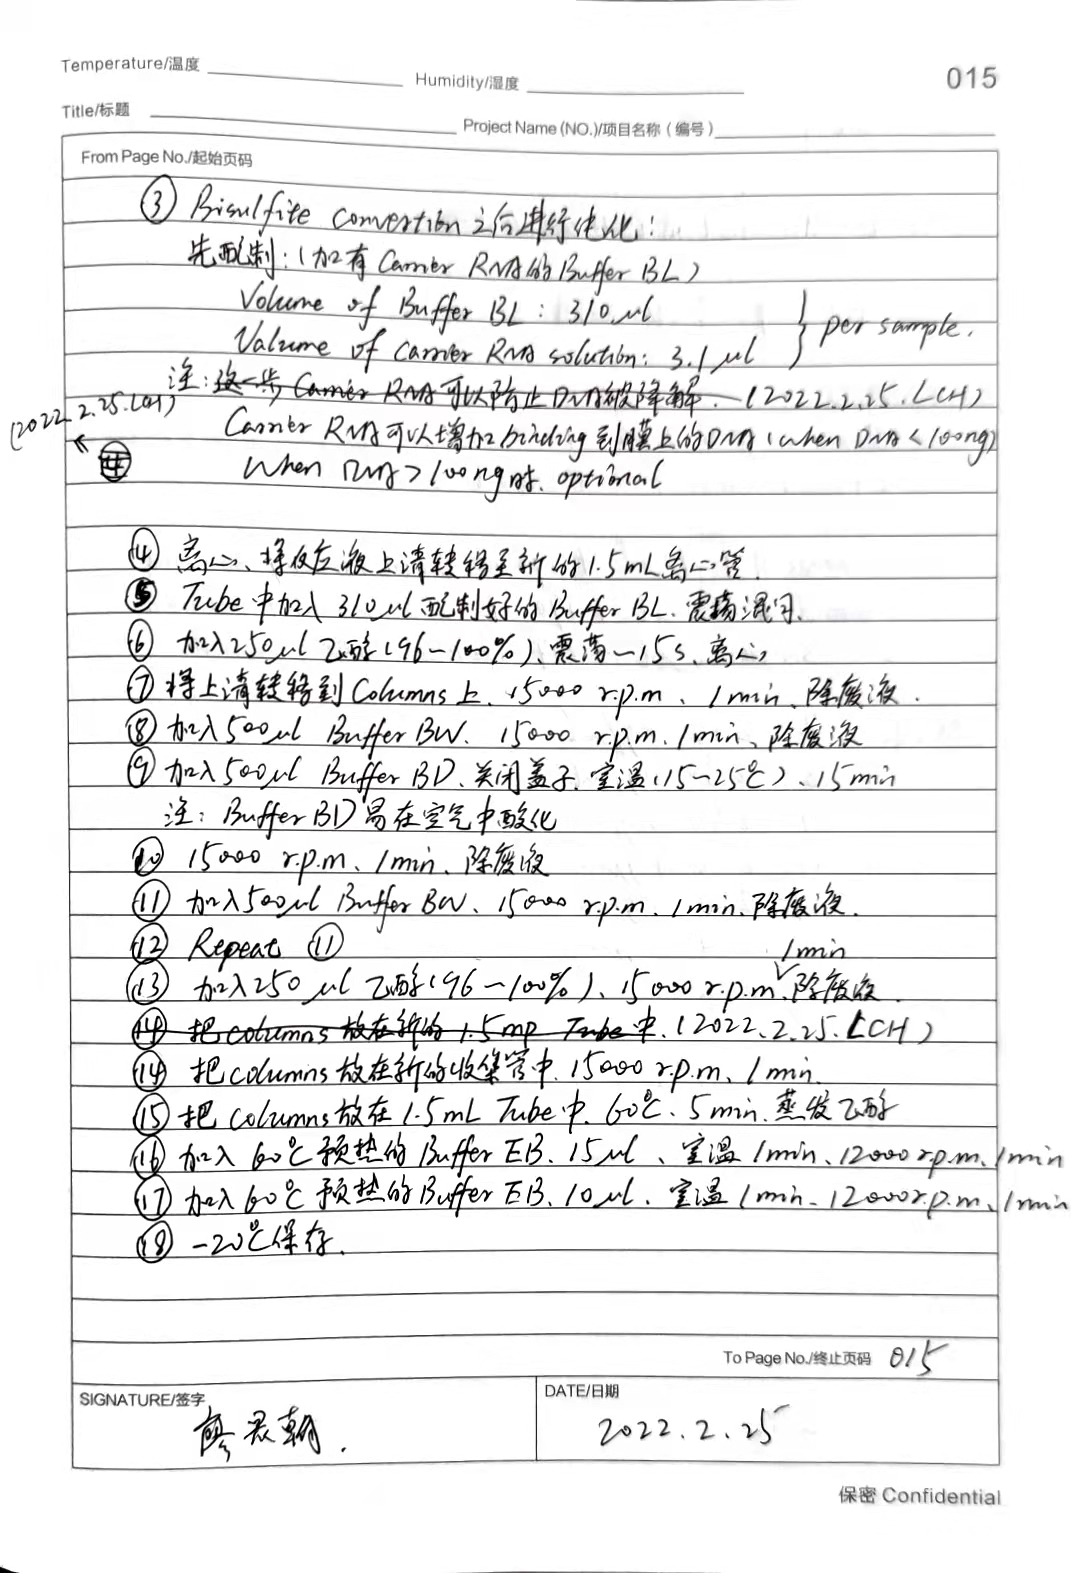 Temperature/温度
Humidity/湿度
015
Title/标题
Project Name (NO.)/项目名称(编号)
From Page No./起始页码
③ Bisulfite convertion 之后进行纯化:
先配制:(加有 Carrier RNA的Buffer BL)
Volume of Buffer BL : 310 μl
Valume of Carrier RNA solution: 3.1 μl } per sample.
注:这一步 Carrier RNA 可以防止DNA被降解. (2022.2.25.LCH)
(2022.2.25.LCH)
Carrier RNA可以增加 binding 到膜上的DNA (when DNA < 100ng)
When DNA > 100ng时. optional
④ 离心、将反应液上清转移至新的1.5mL离心管.
⑤ Tube中加入 310μl 配制好的 Buffer BL. 震荡混匀.
⑥ 加入250μl 乙醇(96~100%)、震荡~15s、离心
⑦ 将上清转移到Columns上、15000 r.p.m、1min、除废液.
⑧ 加入500μl Buffer BW. 15000 r.p.m. 1min、除废液
⑨ 加入500μl Buffer BD、关闭盖子、室温(15~25℃)、15min
注: Buffer BD 易在空气中酸化
⑩ 15000 r.p.m、1min、除废液
⑪ 加入500μl Buffer BW、15000 r.p.m. 1min.除废液.
⑫ Repeat ⑪
1min
⑬ 加入250 μl 乙醇(96~100%)、15000 r.p.m.除废液.
⑭ 把columns 放在新的 1.5mp Tube中. (2022.2.25.LCH)
⑭ 把columns放在新的收集管中. 15000 r.p.m、1min.
⑮ 把 columns放在 1.5mL Tube中. 60℃、5min.蒸发乙醇
⑯ 加入 60℃预热的 Buffer EB. 15μl、室温 1min、12000 r.p.m、1min
⑰ 加入60℃预热的Buffer EB. 10μl. 室温 1min. 12000r.p.m、1min
⑱ -20℃保存.
To Page No./终止页码 015
SIGNATURE/签字
DATE/日期
2022.2.25
保密 Confidential